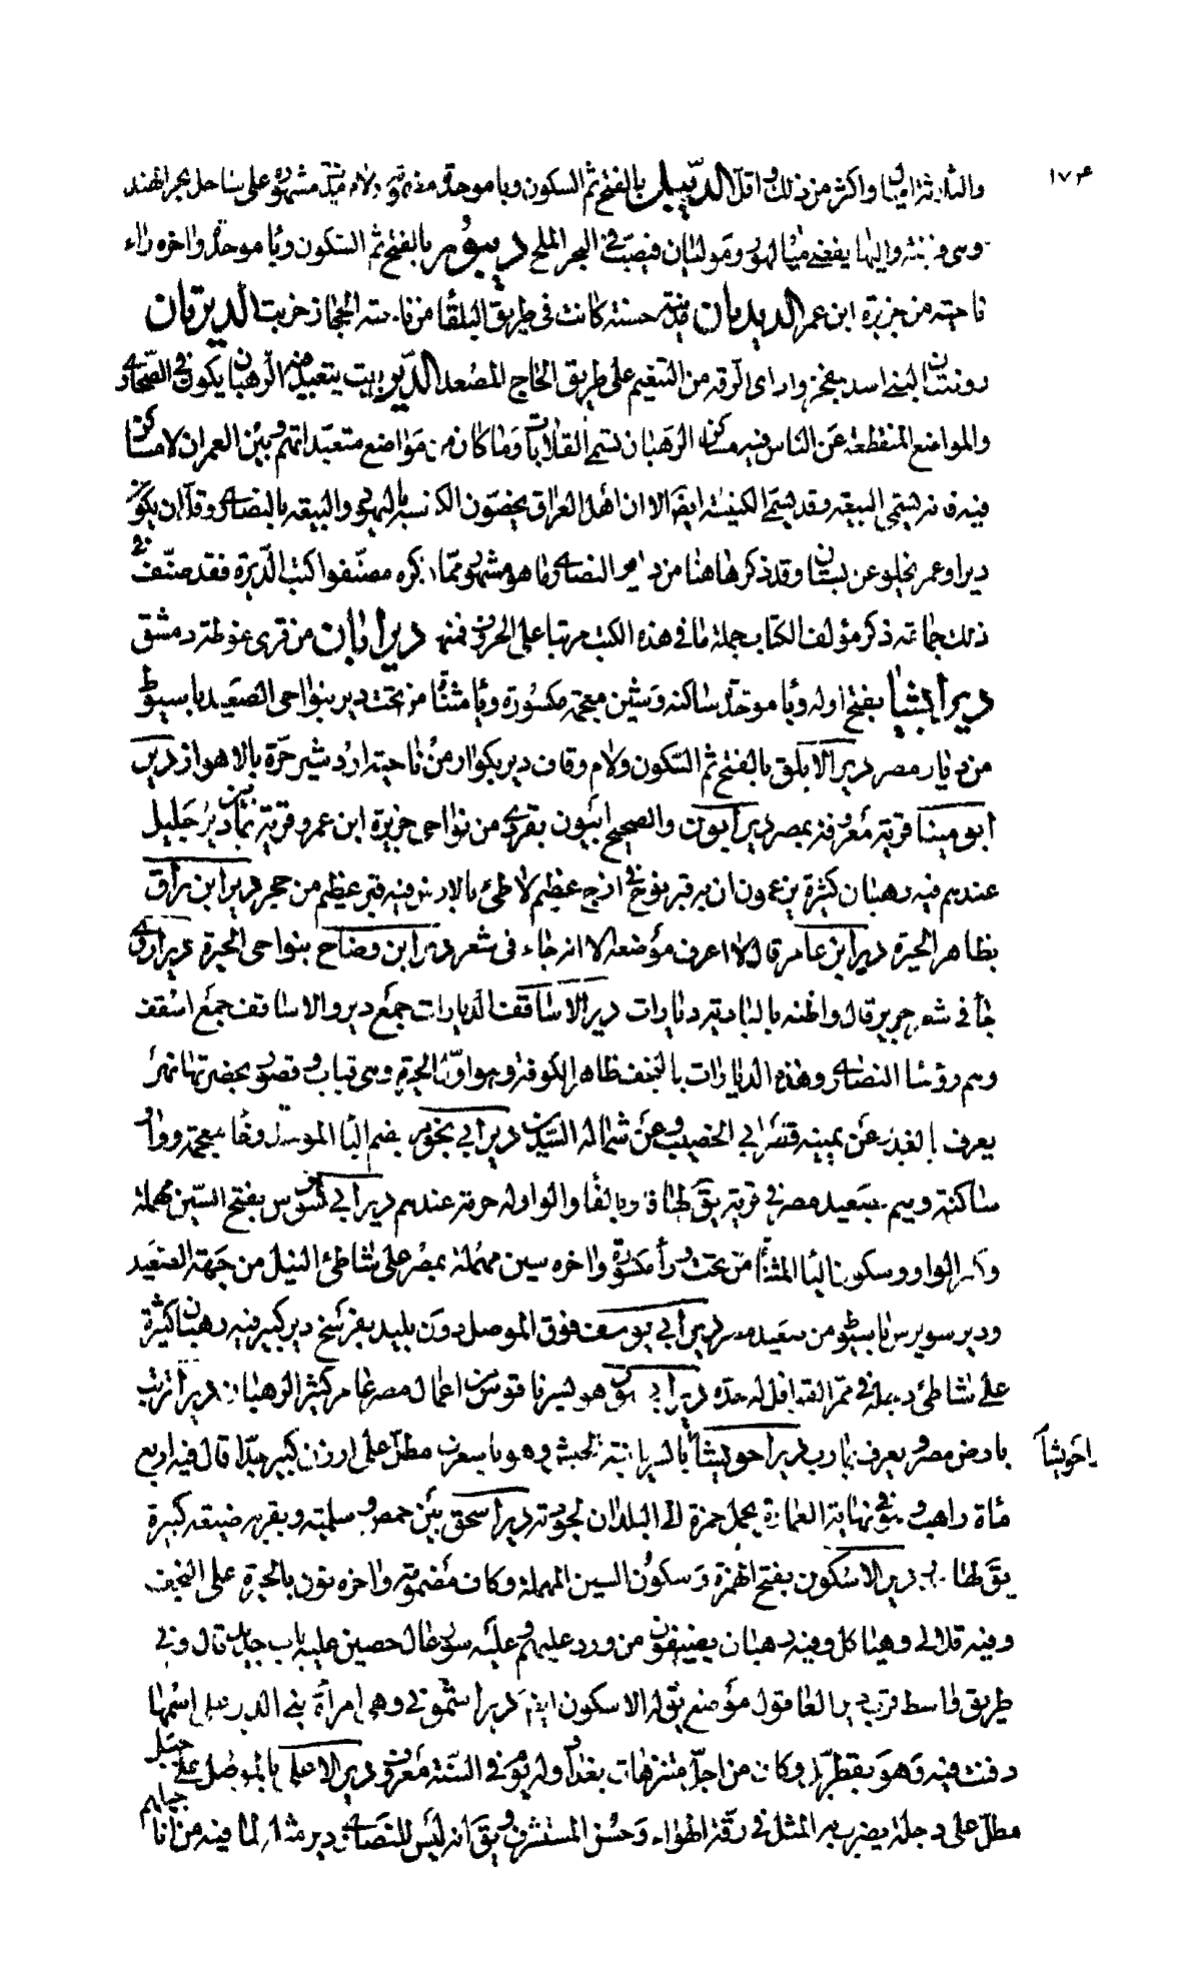 ١٧٤
والثانية اميال واكثر من ذلك واقل الديبل بالفتح ثم السكون وبا موحدة مضمومة ولام مدينة مشهورة على ساحل بحر الهند
وهى فرضة واليها يفضى مياه لهور ومولتان فيصب فى البحر الملح ديبور بالفتح ثم السكون وبا موحدة واخره راء
ناحية من جزيرة ابن عمر الديدان مدينة حسنة كانت فى طريق البلقا من ناحية الحجاز خربت الديرتان
روضتان لبنى اسد بمفجر وادى الرمة من التنعيم على طريق الحاج المصعد الدير بيت يتعبد فيه الرهبان يكون فى الصحارى
والمواضع المنقطعة عن الناس فيه مساكن الرهبان تسمى القلايات وما كان من مواضع متعبداتهم وبين العمران لا مساكن
فيه فانه يسمى البيعة وقد يسمى الكنيسة ايضا الا ان اهل العراق يخصون الكنيسة باليهود والبيعة بالنصارى وقل ان يكون
دير او عمر يخلو عن بستان وقد ذكرها هنا من ديار النصارى وما هو مشهور مما ذكره مصنفوا كتب الديرة فقد صنف فى
ذلك جماعة ذكر مؤلف الكتاب جملة ما فى هذه الكتب مرتبا على الحروف فمنها دير ابان من قرى غوطة دمشق
دير ابشيا بفتح اوله وبا موحدة ساكنة وشين معجمة مكسورة ويا مثناة من تحت دير بنواحى الصعيد باسيوط
من ديار مصر دير الابلق بالفتح ثم السكون ولام وقاف دير بكوار من ناحية اردشير خرة بالاهواز دير
ابو مينا قرية معروفة بمصر دير ابون والصحيح ابيون بقردى من نواحى جزيرة ابن عمر وقرية ثمانين دير جليل
عندهم فيه رهبان كثيرة يزعمون ان به قبر نوح فى ازج عظيم لاطئ بالارض فيه قبر عظيم من حجر دير ابن براق
بظاهر الحيرة دير ابن عامر قال لا اعرف موضعه الا انه جاء فى شعر دير ابن وضاح بنواحى الحيرة دير اروى
جا فى شعر جرير قال واظنه بالبادية ديارات دير الاساقف الديارات جمع دير والاساقف جمع اسقف
وهم رؤسا النصارى وهذه الديارات بالنجف ظاهر الكوفة وهو اول الحيرة وهى قباب وقصور بحضرتها نهر
يعرف بالغدير عن يمينه قصر ابى الخصيب وعن شماله السدير دير ابى بخوم بضم البا الموحدة وخا معجمة وواو
ساكنة وميم بصعيد مصر فى قرية يق لها فاو بالفا والواو له حرمة عندهم دير ابى سويرس بفتح السين مهملة
وكسر الواو وسكون اليا المثناة من تحت ورا مكسورة واخره سين مهملة بمصر على شاطئ النيل من جهة الصعيد
ودير سويرس باسيوط من صعيد مصر دير ابى يوسف فوق الموصل دون بليد بفرسخ دير كبير فيه رهبان كثيرة
على شاطئ دجلة فى ممر القوافل له حده دير ابى هور هو بسرياقوس من اعمال مصر عامر كثير الرهبان دير اتريب
بارض مصر ويعرف بمارت دير احويشا بالسريانية الحبيش وهو باسعرت مطل على ارزن كبير جدا قال فيه اربع
احويشا
مأة راهب فى نهاية العمارة يحمل خمره الى البلدان لجودته دير اسحق بين حمص وسلمية وبقربه ضيعة كبيرة
يق لها جدر دير الاسكون بفتح الهمزة وسكون السين المهملة وكاف مضمومة واخره نون بالحيرة على النجف
وفيه قلالى وهياكل وفيه رهبان يضيفون من ورد عليهم وعليه سور عال حصين عليه باب حديد قال وفى
طريق واسط قرب دير العاقول موضع يق له الاسكون ايض دير اشمونى وهى امراة بنى الدير على اسمها
دفنت فيه وهو بقطربل وكان من اجل متنزهات بغداد وله يوم فى السنة معروف دير الاعلى بالموصل على جبل
مطل على دجلة يضرب به المثل فى رقة الهواء وحسن المستشرف ويق انه ليس للنصارى دير مثله لما فيه من اناجيلهم